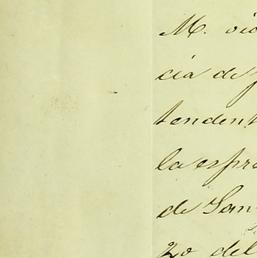 M. vio
cia de
tendent
la espre
de San
20 del